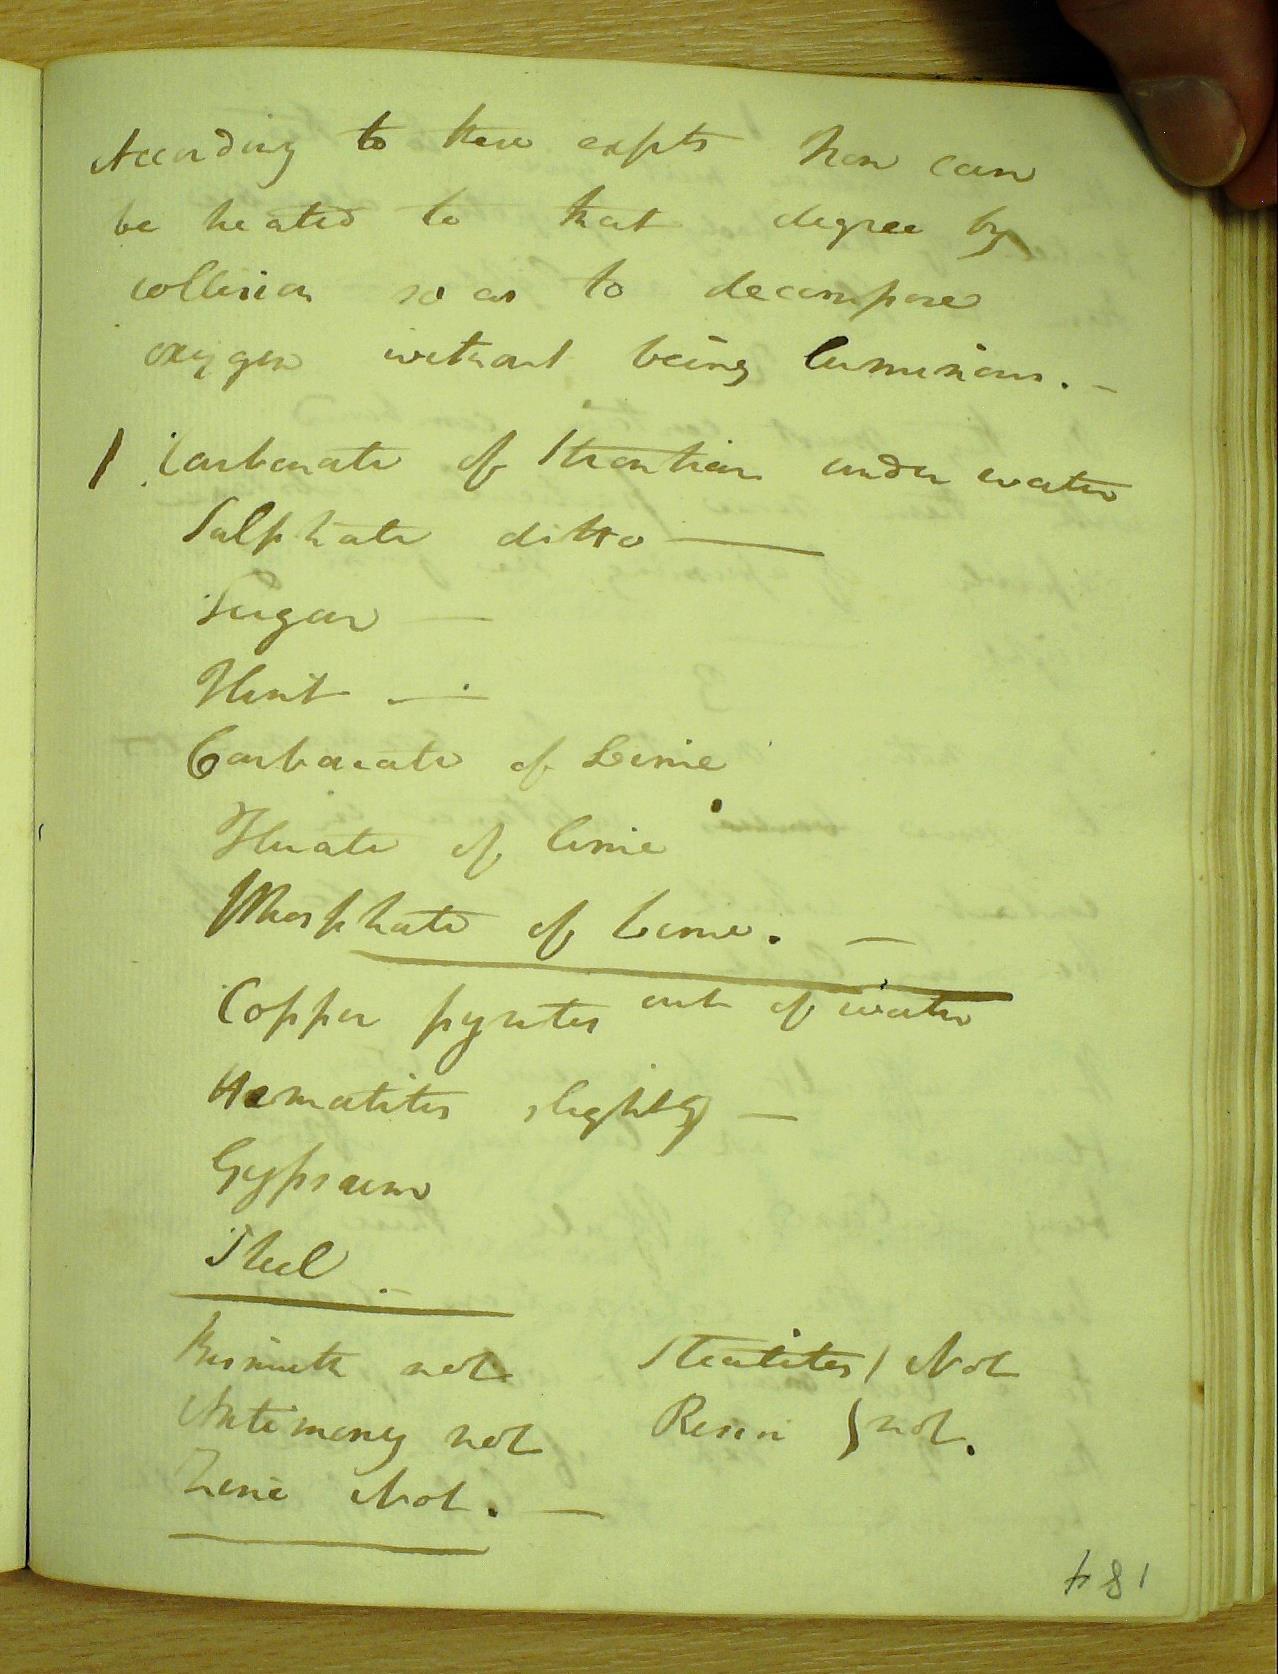 According to these expts Iron can
be heated to that degree by
collision so as to decompose
oxygen without being luminous. –
1 Carbonate of Strontian under water
Sulphate ditto —
Sugar —
Flint —
Carbonate of Lime
Fluate of lime
Phosphate of Lime. —
Copper pyrites out of water
Hematites slightly —
Gypsum
Steel
Bismuth not
Steatites / Not
Antimony not
Resin } not.
Zinc Not. —
184